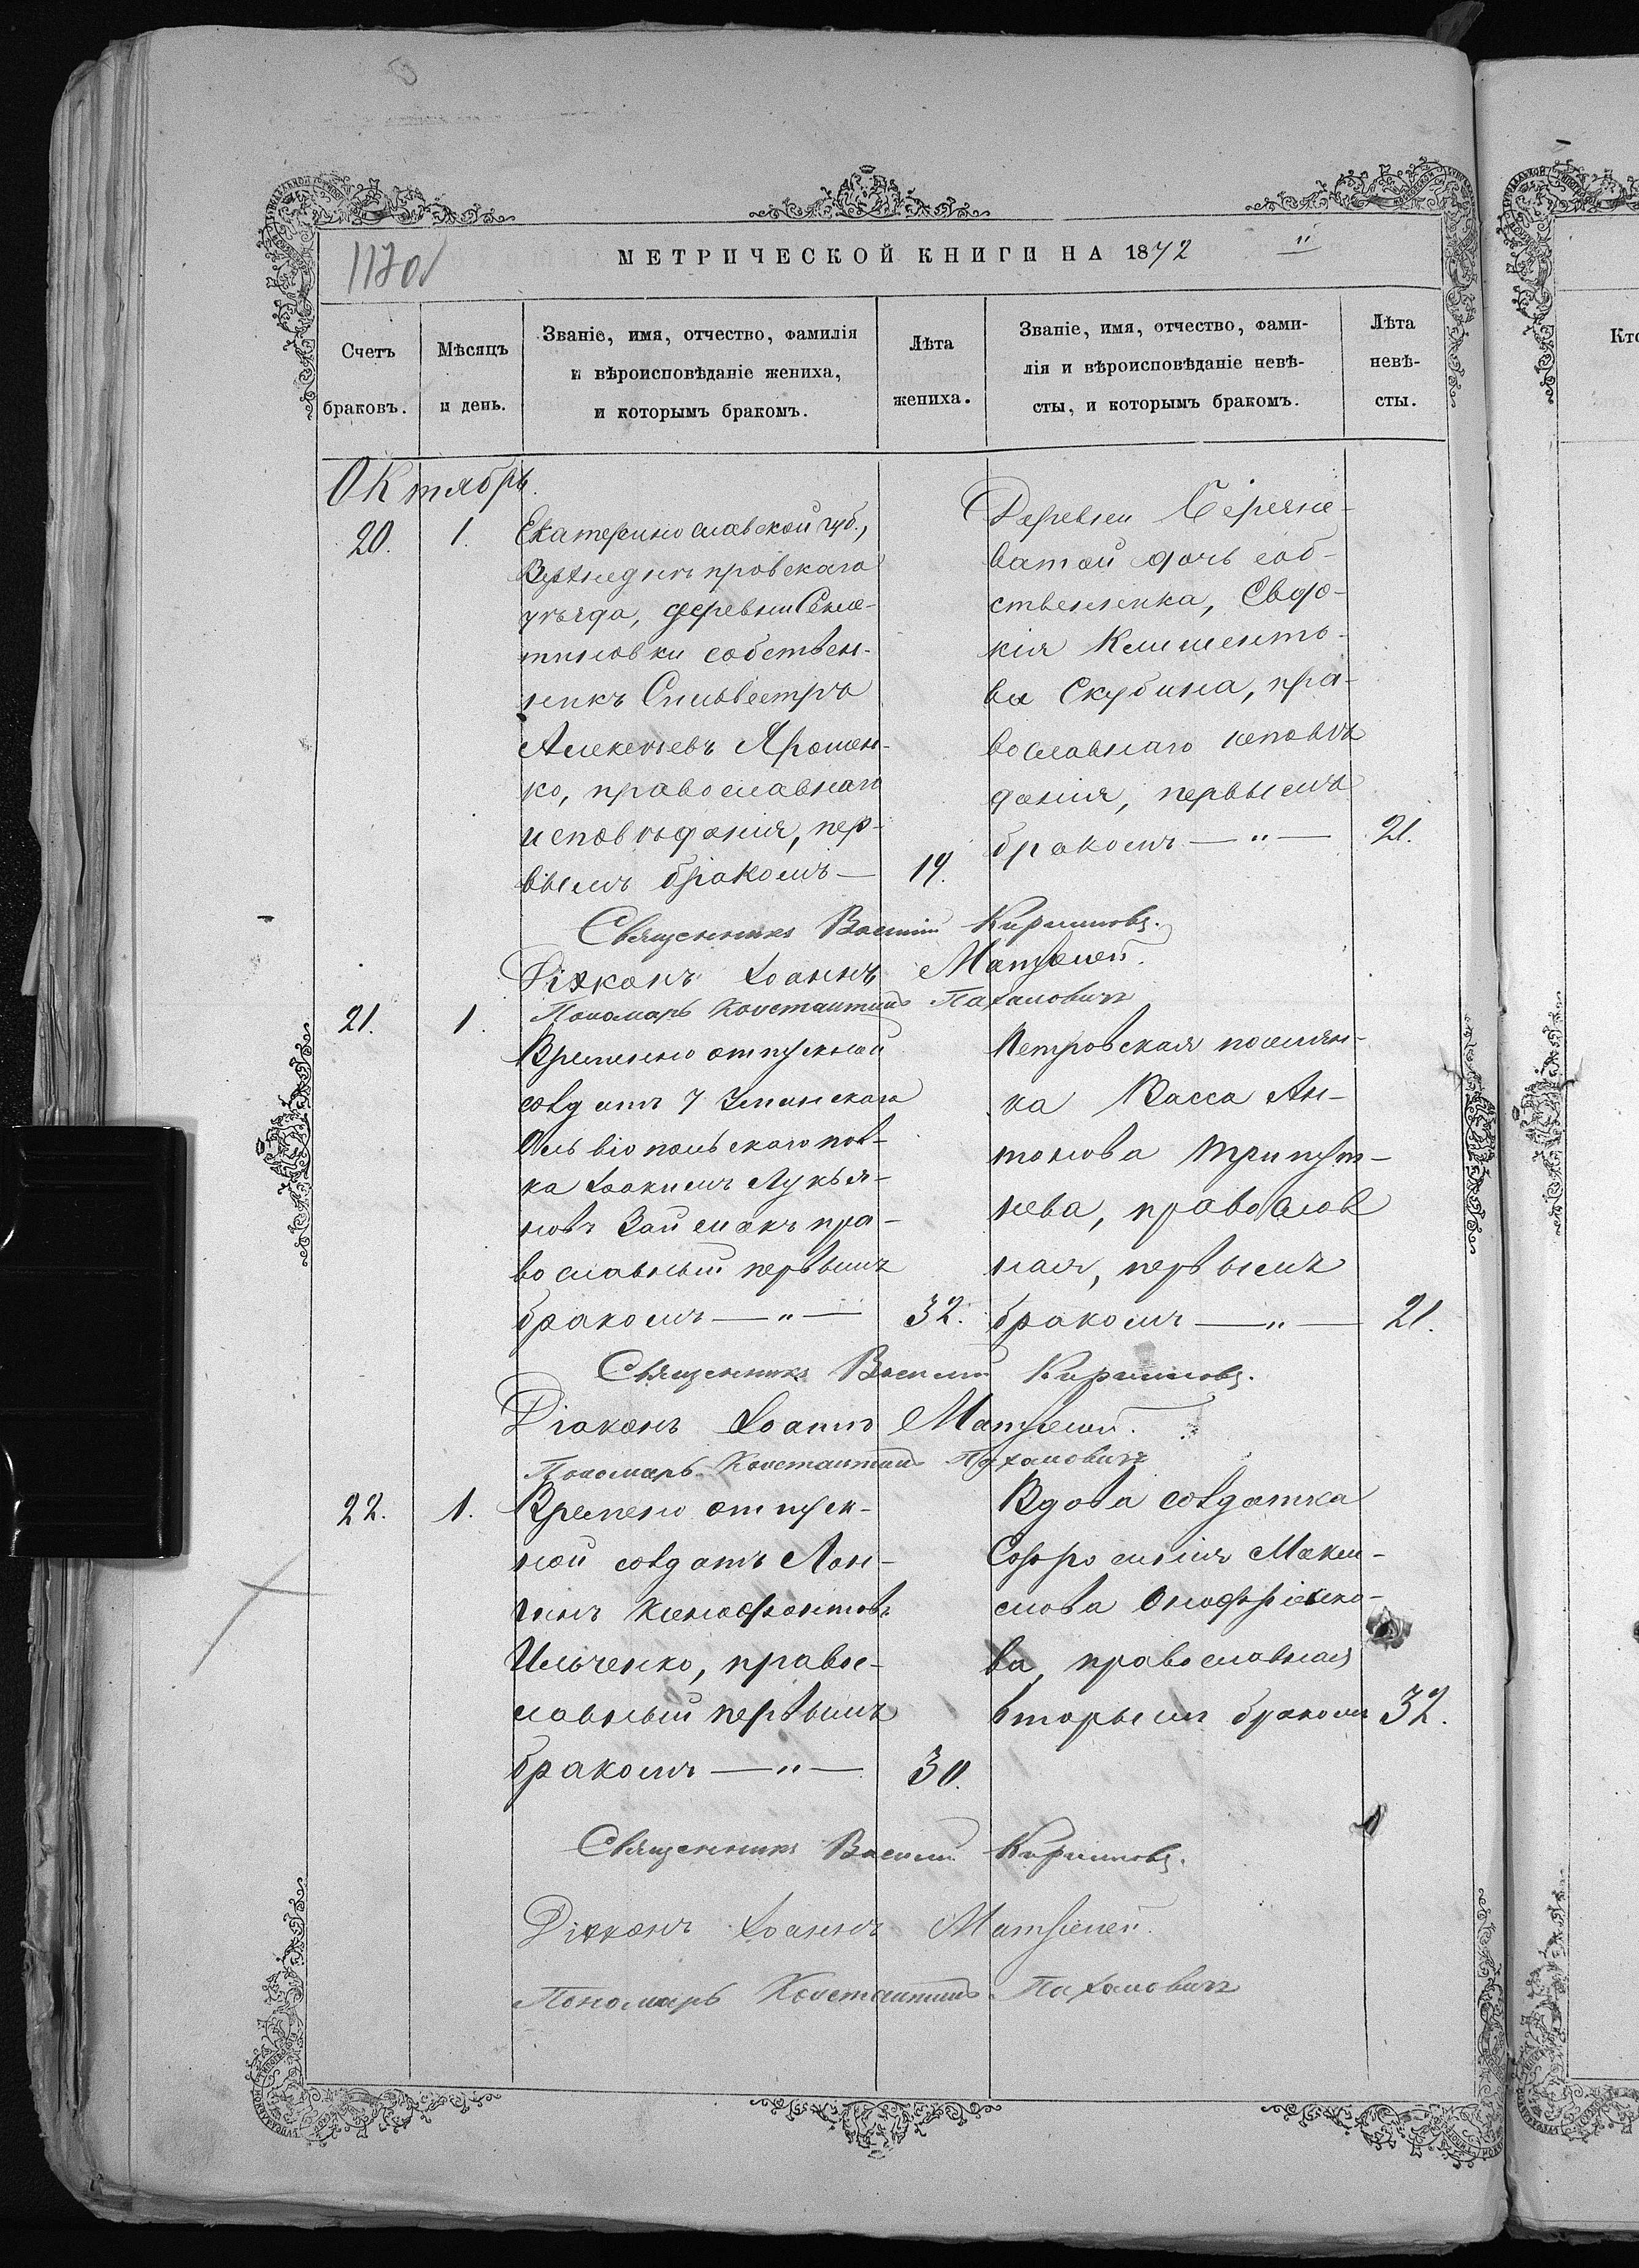 МЕТРИЧЕСКОЙ КНИГИ НА 1872
Счетъ браковъ.
Мѣсяцъ и день.
Званіе, имя, отчество, фамилія
и вѣроисповѣданіе жениха,
и которымъ бракомъ.
Лѣта жениха.
Званіе, имя, отчество, фами-
лія и вѣроисповѣданіе невѣ-
сты, и которымъ бракомъ.
Лѣта невѣ-
сты.
Октябрь.
20. 1.
Екатеринославской губ.,
Верхнеднѣпровскаго
уѣзда, деревни Семе-
тиновки собствен-
никъ Сильвестръ
Алексѣевъ Ярошен-
ко, православнаго
исповѣданія, пер-
вымъ бракомъ — 19.
Деревни Терне-
ватой дочь соб-
ственника, Евдо-
кія Климентъ-
ва Скубина, пра-
вославнаго исповѣ
данія, первымъ
бракомъ — " — 21.
Священникъ Василій Кириловъ.
Діаконъ Іоаннъ
Пономарь Константинъ Пахаловичъ
21. 1.
Временно отпускной
солдатъ 7 Уланскаго
Ольвіопольскаго пол-
ка Іоакимъ Лукья-
новъ Займакъ пра-
вославный первымъ
бракомъ — " — 32.
Петровская поселян-
ка Васса Ан-
тонова Трипут-
нева, православ
ная, первымъ
бракомъ — " — 21.
Священникъ Василій Кириловъ.
Діаконъ Іоаннъ
Пономарь Константинъ Пахаловичъ
22. 1.
Времено отпуск-
ной солдатъ Лон-
гинъ Ксенофонтовъ
Ильченко, право-
славный первымъ
бракомъ — " — 30.
Вдова солдатка
Софронія Макси-
мова Онофріенко-
ва, православная
вторымъ бракомъ 32.
Священникъ Василій Кириловъ.
Діаконъ Іоаннъ
Пономарь Константинъ Пахаловичъ